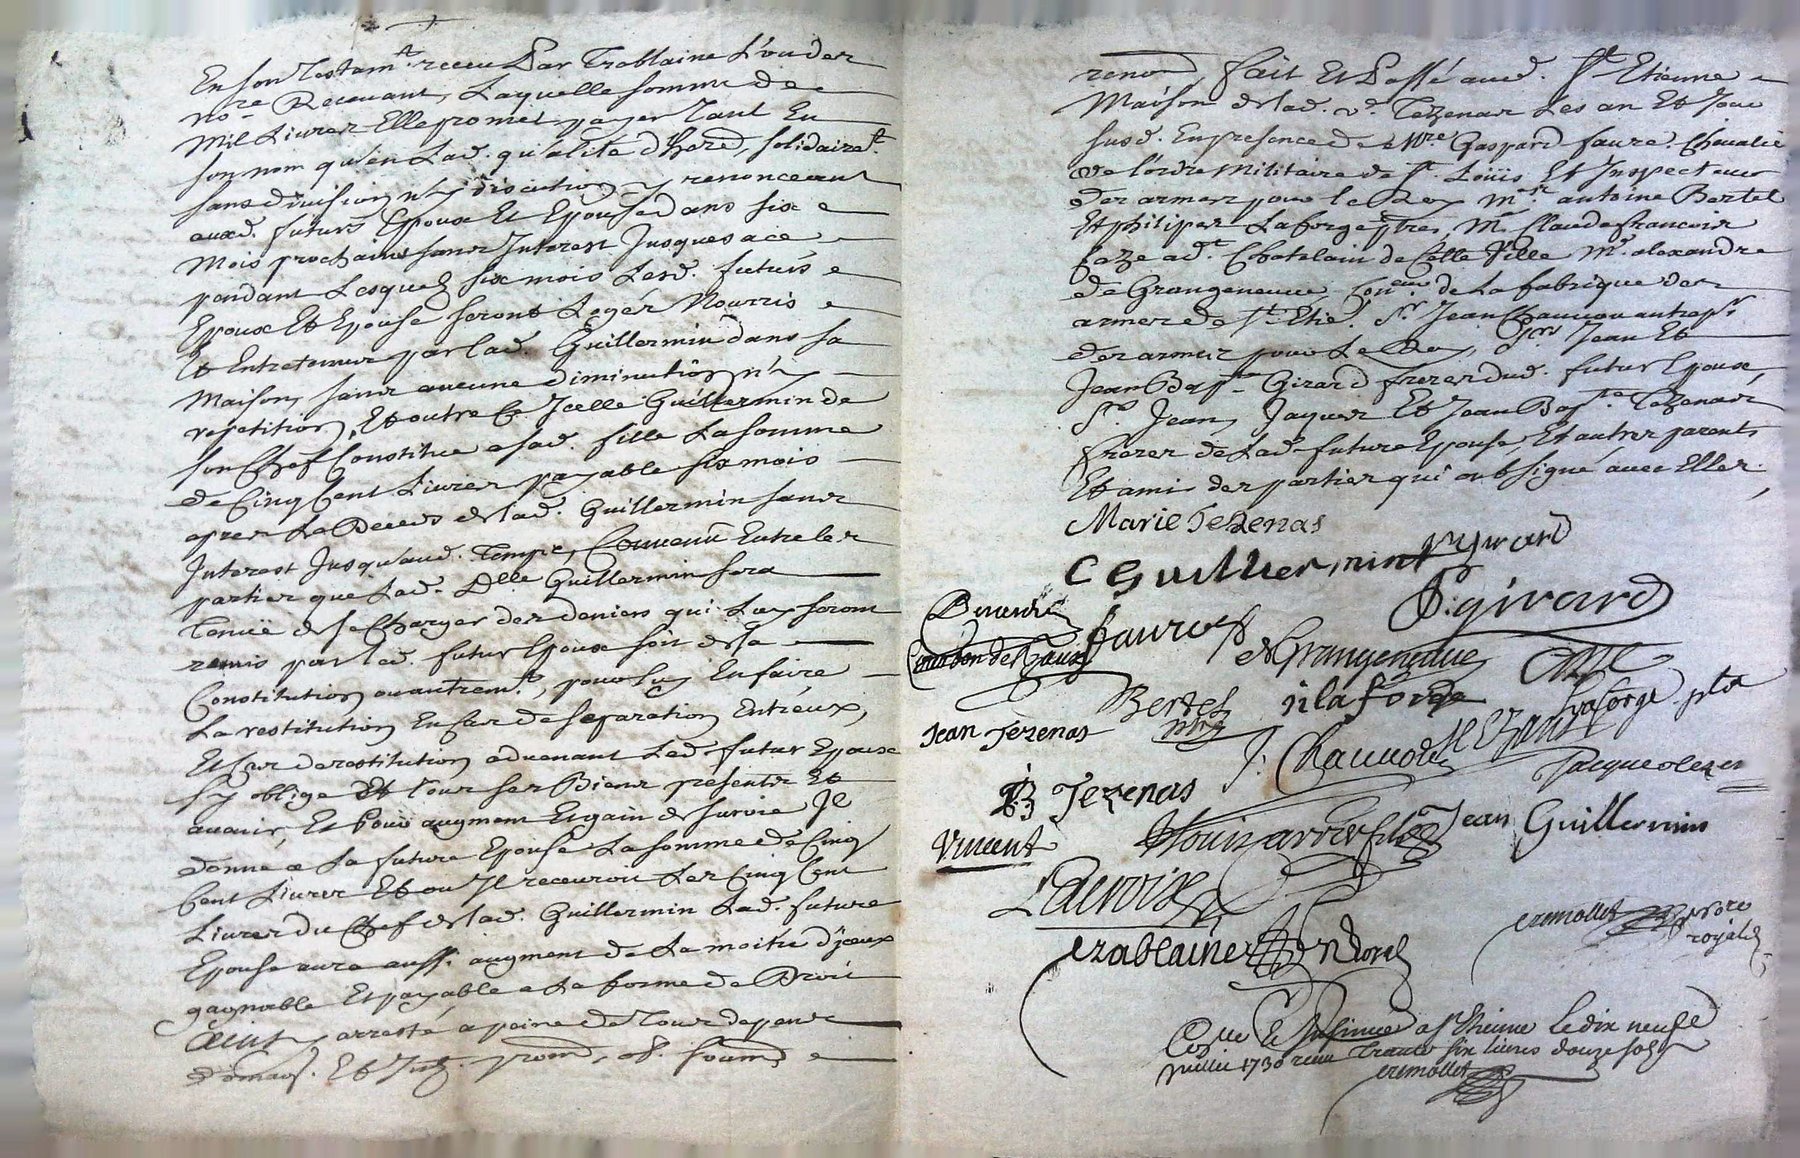 En son Testamt. receu Par Trablaine L'un des
nore. Recevant, Laquelle somme de
Mil Livres Elle promet payer Tant En
son nom qu'en Lad. qualité d'hered, solidairet.
sans division ny discution y renonceant
auxd. futurs Epoux Et Epouse dans six
Mois prochains sans Interest Jusques a ce
pendant Lesquels six mois Lesd. futurs
Epoux Et Epouse seront Logés Nourris
Et Entretenus par lad. Guillermin dans sa
Maison, sans aucune diminution ny
repetition, Et outre Ce Icelle Guillermin de
son Chef Constitue a sad. fille La somme
de Cinq Cent Livres payable six mois
apres Le Deceds de lad. Guillermin sans
Interest Jusqu'aud. Temps, Convenu Entre les
parties que Lad. Dlle. Guillermin sera
Tenuë de se Charger des deniers qui Luy seront
remis par lad. futur Epoux soit de sa
Constitution ou autremt., pour luy En faire
La restitution En Cas de separation Entr'eux,
Et Cas de restitution advenant Led. futur Epoux
s'y oblige Et Tous ses Biens presents Et
avenir, Et Pour augment Et gain de survie Il
donne a La future Epouse La somme de Cinq
Cent Livres Et ou Il recevroit Les Cinq Cent
Livres du Chef de lad. Guillermin Lad. future
Epouse aura aussi augment de La moitié d'iceux
gagnable Et payable a La forme de Droit
Ainsy arresté a peine de Tous depens
domag. Et Int. prom, ob. soumd
renond, fait Et Passé aud. St. Etienne
Maison de lad. ve. Tezenas Les an Et Jour
susd. En presence de Mre. Gaspard faure. Chevalier
de l'ordre Militaire de St. Loüis Et Inspecteur
des armes pour le Roy Mrs. antoine Bertet
Et philipes Laforge ptres, Me. Claude françois
Caze adt. Chatelain de Cette Ville Mr. alexandre
de Grangeneuve Conerur de La fabrique des
armes de St. Etie. Sr. Jean Chauvon antrepr.
des armes pour Le Roy, Srs. Jean Et
Jean Bapte. Girard freres dud. futur Epoux,
Sr. Jean, Jaques Et Jean Bapte. Tezenas
freres de Lad. future Epouse, Et autres parents
Et amis des parties qui ont signé avec Elles.
Marie Tezenas
C Guillermint Girard
P. girard
faure
de Grangeneuve Caze
Bertet ptre J laforge Laforge ptre
Jean Tezenas
J. Chauvon
Jacque olezer
JB Tezenas
Vincent Jean Guillermin
Lacroix
trablaine Noral
cremollet
royal
Colle. Et Insinué a St. Etienne Le dix neufe
juillet 1730 receu Trante six livres douze sols
cremollet